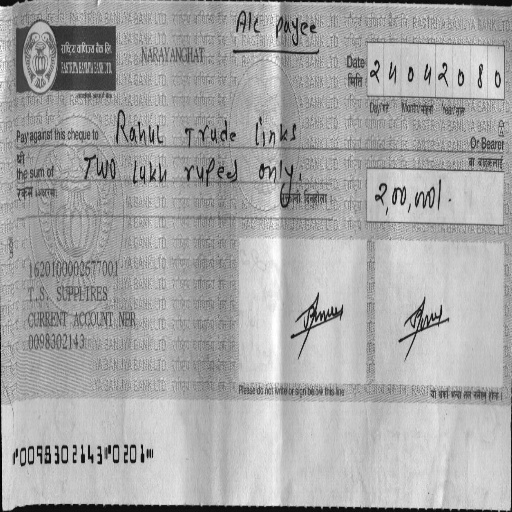 A/c payee
राष्ट्रिय वाणिज्य बैंक लि.
RASTRIYA BANIJYA BANK LTD.
NARAYANGHAT
Date
मिति
24042080
Day/गते Month/महिना Year/साल
Pay against this cheque to Rahul Trade links
Or Bearer
वा बाहकलाई
श्री
the sum of Two lakh rupees only.
रकम अक्षरमा
2,00,000/-
1620100002677001
T.S. SUPPLIRES
CURRENT ACCOUNT NPR
0098302143
Please do not write or sign below this line
⑈0098302143⑈0201⑈